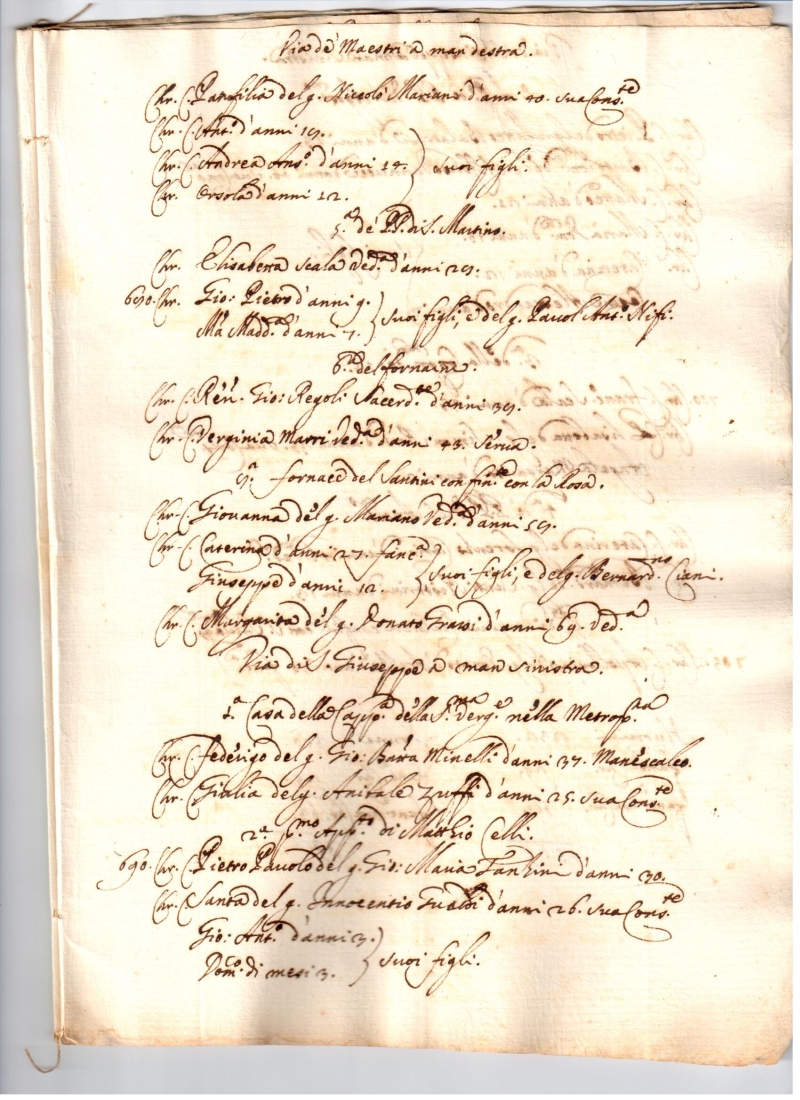 Via de Maestri a man destra.
Chr. C. Panfilia del q. Niccolò Mariani d'anni 40. sua Cons.te
Chr. C. Ant.o d'anni 19.
Chr. C. Andrea Ans.o d'anni 14. } suoi figli.
Chr. Orsola d'anni 12.
5.a de PP. di S. Martino.
Chr. Elisabetta Scala Ved.a d'anni 29.
Chr. Gio: Pietro d'anni 9. } suoi figli, e del q. Pavol Ant.o Nifi.
M.a Madd.a d'anni 7.
6.a del fornaine.
Chr. C. Rev. Gio: Regoli Sacerd.te d'anni 39.
Chr. C. Verginia Marri Ved.a d'anni 43. Serva.
fornace del Santini confin.te con la Rosa.
Chr. C. Giovanna del q. Mariano Ved.a d'anni 59.
Chr. C. Caterina d'anni 27. fanc.a } suoi figli, e del q. Bernard.no Ciani.
Giuseppe d'anni 12.
Chr. C. Margarita del q. Donato Grassi d'anni 69. Ved.a
Via di S. Giuseppe a man sinistra.
1.a Casa della Capp.a della S.ma Verg.e nella Metrop.na
Chr. C. Federigo del q. Gio: Batta Minelli d'anni 37. Manescalco.
Chr. C. Giulia del q. Anibale Zuffi d'anni 25. sua Cons.te
2.a p.mo App.to di Matthio Celli.
690. Chr. C. Pietro Pavolo del q. Gio: Maria Fanhini d'anni 30.
Chr. C. Santa del q. Innocentio d'anni 26. sua Cons.te
Gio: Ant.o d'anni 3. } suoi figli.
Dom.co di mesi 3.